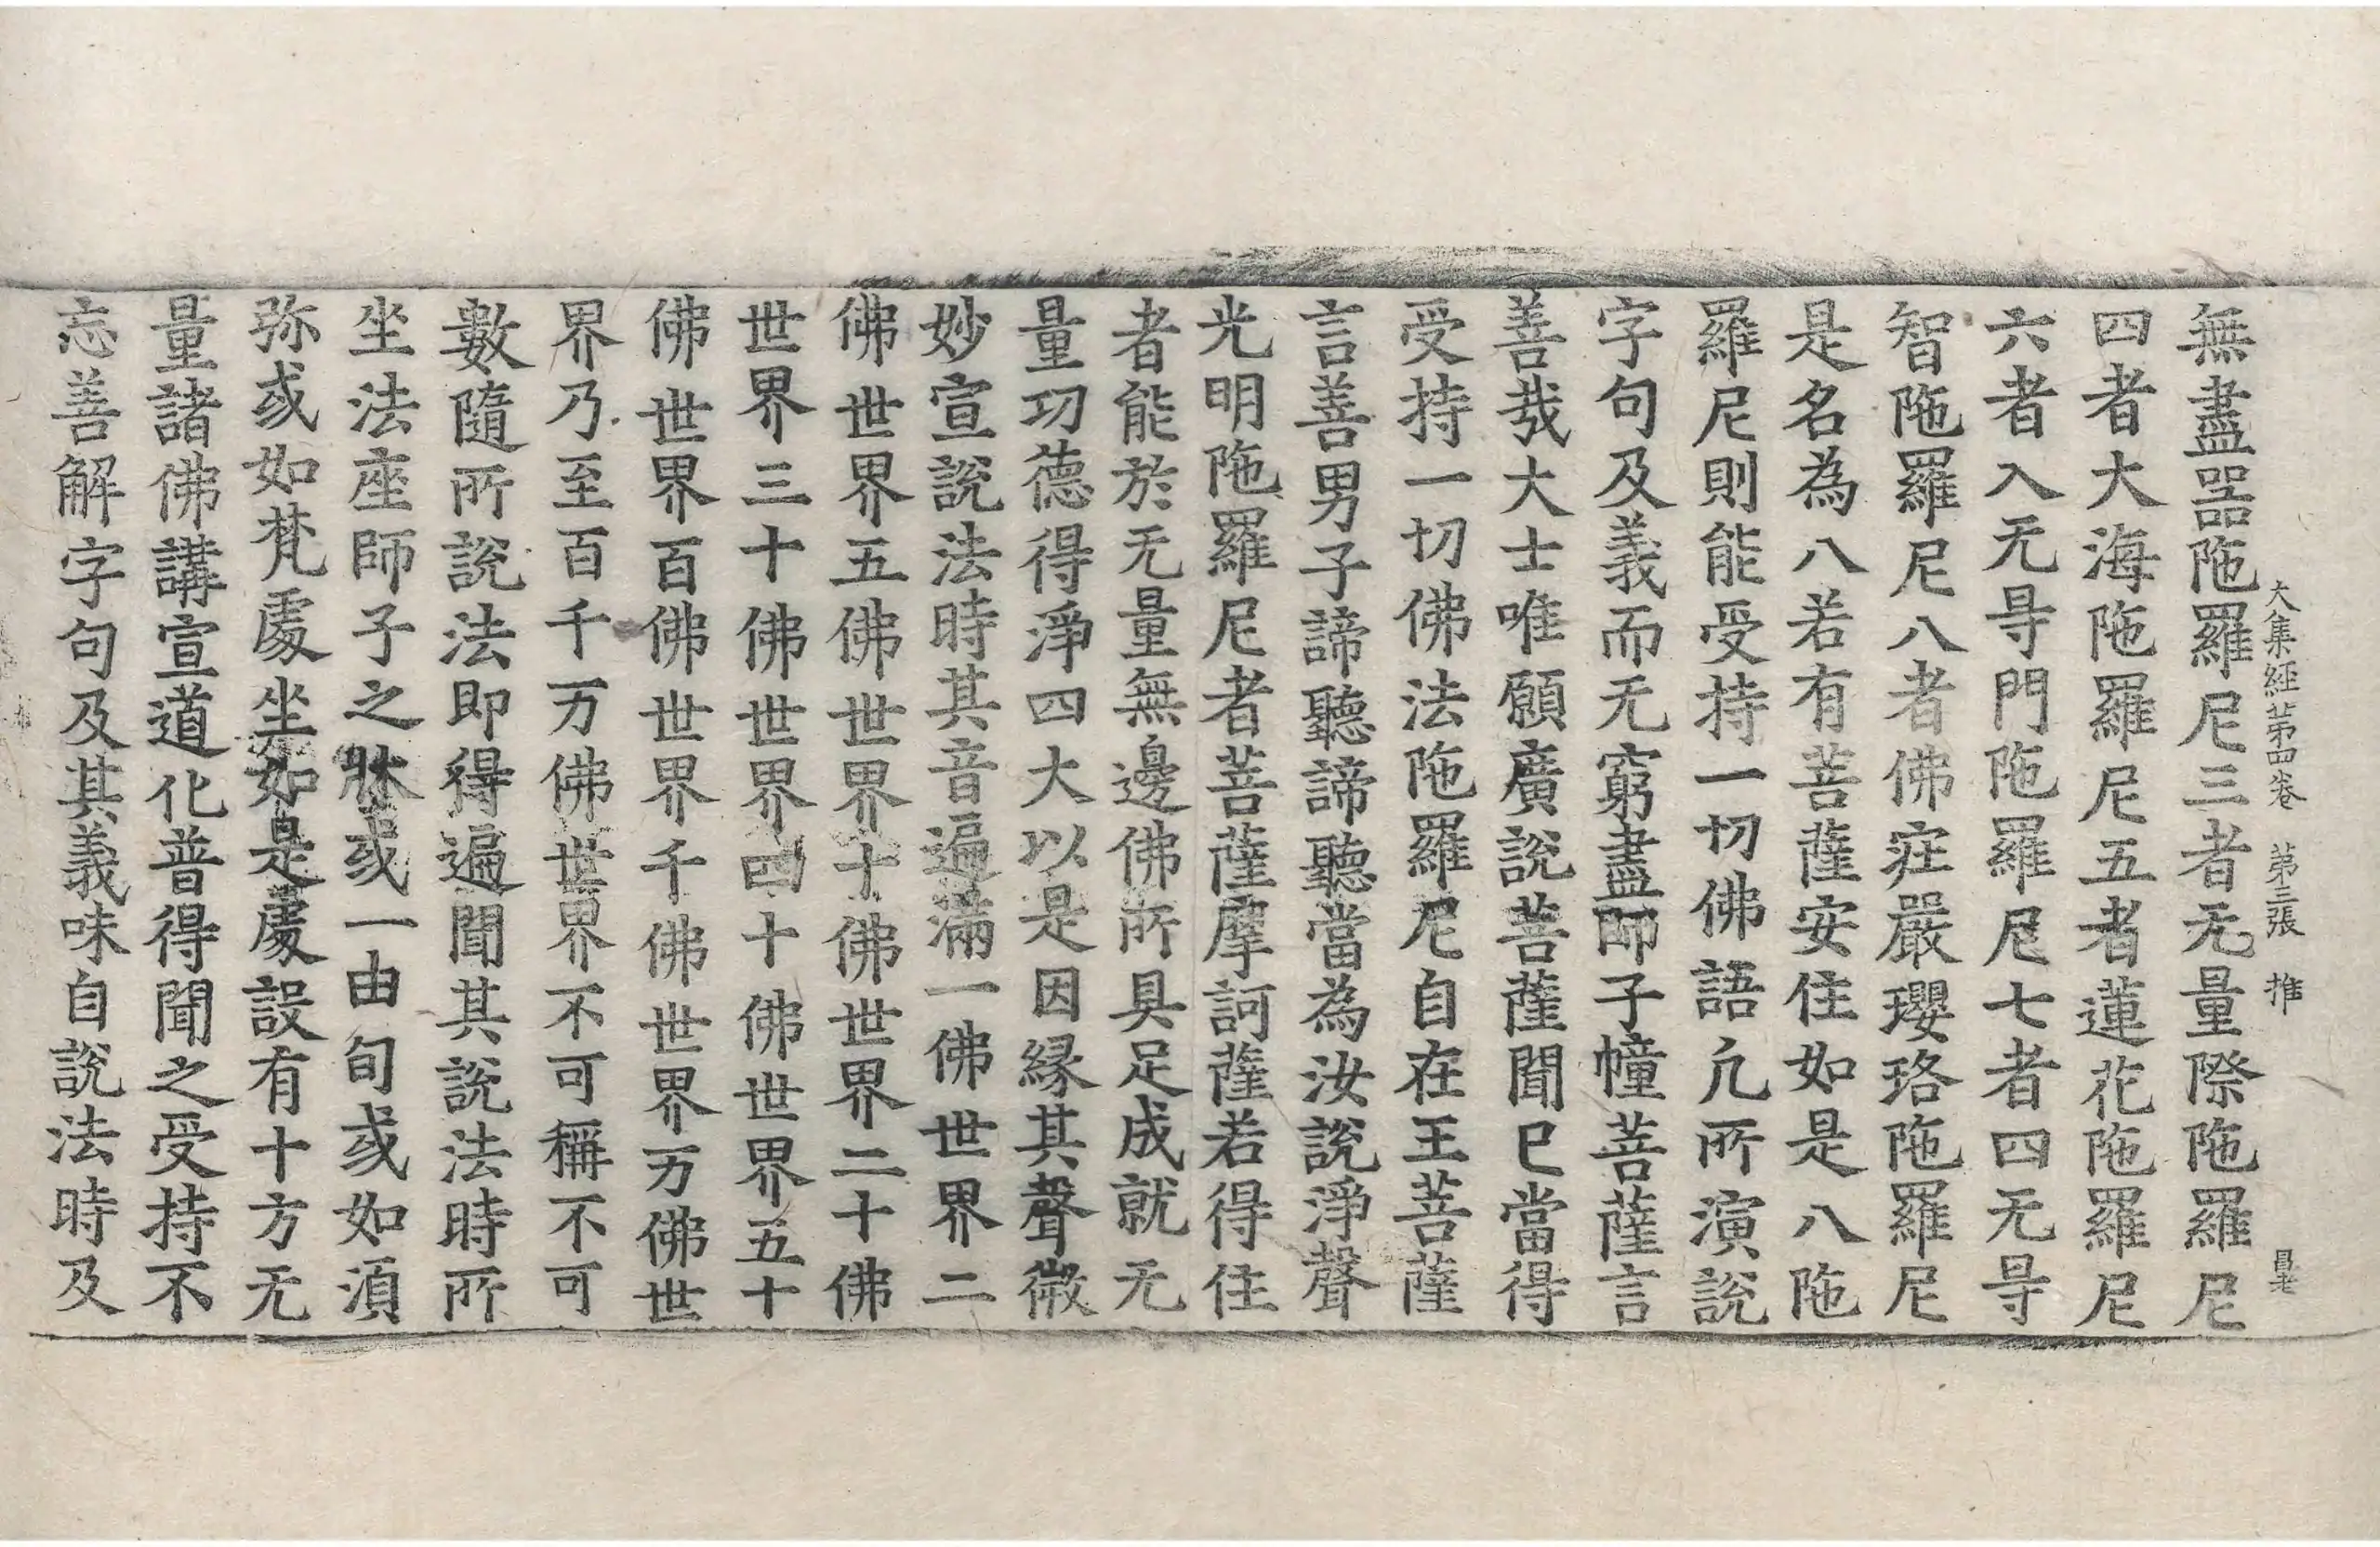 大集經第四卷 第三張 推 昌老
無盡器陁羅尼三者无量際陁羅尼
四者大海陁羅尼五者蓮花陁羅尼
六者入无㝵門陁羅尼七者四无㝵
智陁羅尼八者佛㽵嚴瓔珞陁羅尼
是名為八若有菩薩安住如是八陁
羅尼則能受持一切佛語凢所演說
字句及義而无窮盡師子幢菩薩言
善㢤大士唯願廣說菩薩聞已當得
受持一切佛法陁羅尼自在王菩薩
言善男子諦聽諦聽當為汝說淨聲
光明陁羅尼者菩薩摩訶薩若得住
者能於无量無邊佛所具足成就无
量功德得淨四大以是因縁其聲微
妙宣說法時其音遍滿一佛世界二
佛世界五佛世界十佛世界二十佛
世界三十佛世界四十佛世界五十
佛世界百佛世界千佛世界万佛世
界乃至百千万佛世界不可稱不可
數隨所說法即得遍聞其說法時所
坐法座師子之牀或一由旬或如須
弥或如梵處坐如是處設有十方无
量諸佛講宣道化普得聞之受持不
忘善解字句及其義味自說法時及